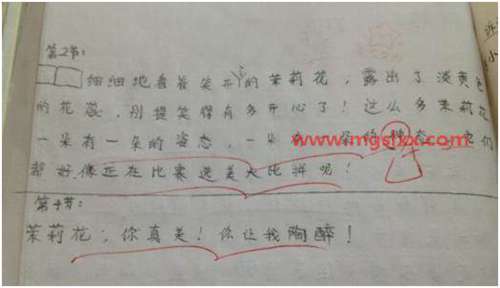 第2节：
细细地看着笑开的茉莉花，露出了淡黄色
的花蕊，别提笑得有多开心了！这么多茉莉花
一朵有一朵的姿态，一朵 态，它们
好像正在比赛选美大比拼呢！
第4节：
茉莉花，你真美！你让我陶醉！